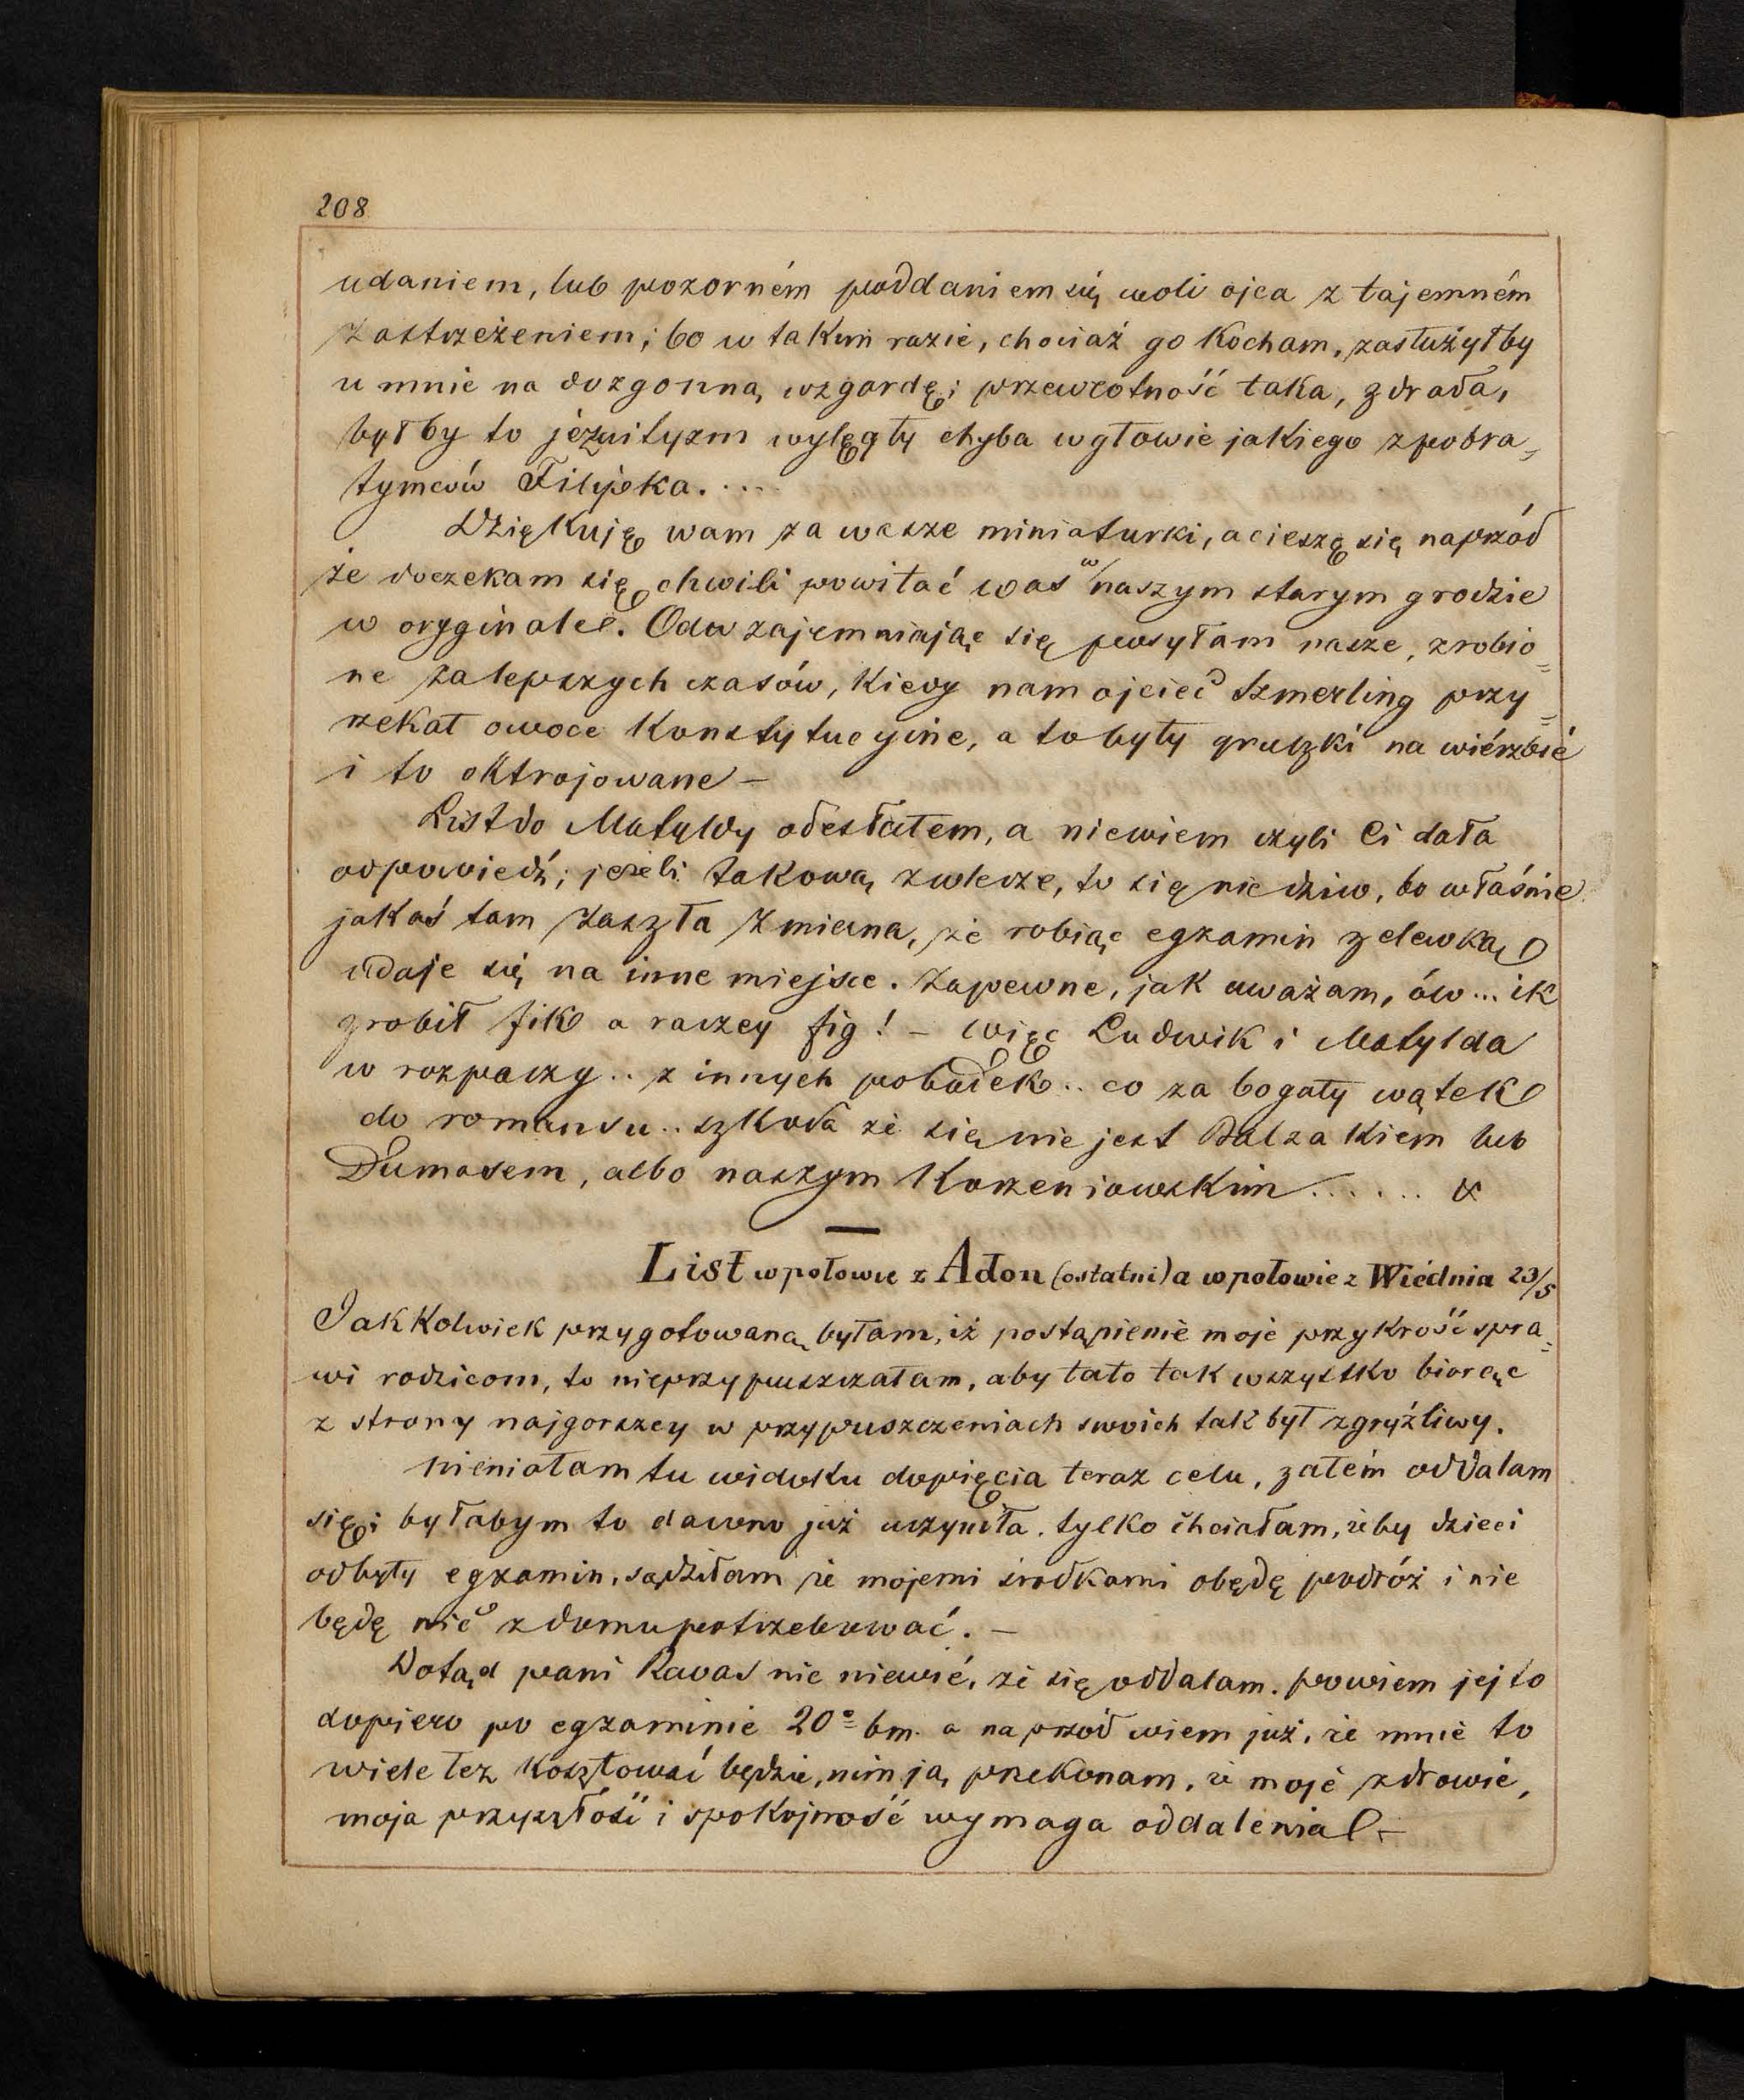 208
udaniem, lub pozorném poddaniem się woli ojca z tajemném
zastrzeżeniem; bo w takim razie, chociaż go kocham, zasłużyłby
u mnie na dozgonną wzgardę; przewrotność taka, zdrada,
byłby to jezuityzm wylęgły chyba w głowie jakiego z pobra=
tymców Filipka. . . .
Dziękuję wam za wasze miniaturki, a cieszę się naprzód
że doczekam się chwili powitać was w naszym starym grodzie
w oryginale. Odwzajemniając się posyłam nasze, zrobio=
ne za lepszych czasów, kiedy nam ojciec Szmerling przy=
rzekał owoce konstytucyjne, a to były gruszki na wiérzbie
i to oktrojowane –
List do Matyldy odesłałem, a niewiem czyli Ci dała
odpowiedź; jeżeli takową zwlecze, to się nie dziw, bo właśnie
jakaś tam zaszła zmiana, że robiąc egzamin z elewką
udaje się na inne miejsce. Zapewne, jak uważam, ów... ik
zrobił fik a raczey fig! – więc Ludwik i Matylda
w rozpaczy.. z innych pobudek.. co za bogaty wątek
do romansu.. szkoda że się nie jest Balzakiem lub
Dumasem, albo naszym Korzeniowskim . . . . . . &
List w połowie z Adon (ostatni) a w połowie z Wiédnia 23/5
Jakkolwiek przygotowaną byłam, iż postąpienie moje przykrość spra=
wi rodzicom, to nieprzypuszczałam, aby tato tak wszystko biorąc
z strony najgorszey w przypuszczeniach swoich tak był zgryźliwy.
Niemiałam tu widoku dopięcia teraz celu, zatém oddalam
się; byłabym to dawno już uczyniła, tylko chciałam, żeby dzieci
odbyły egzamin, sądziłam że mojemi środkami obędę podróż i nie
będę nic z domu potrzebować. –
Dotąd pani Ravas nic niewié, że się oddalam. powiem jej to
dopiero po egzaminie 20° bm. a naprzód wiem już, że mnie to
wiele łez kosztować będzie, nim ją przekonam, że moje zdrowie,
moja przyszłość i spokojność wymaga oddalenia –